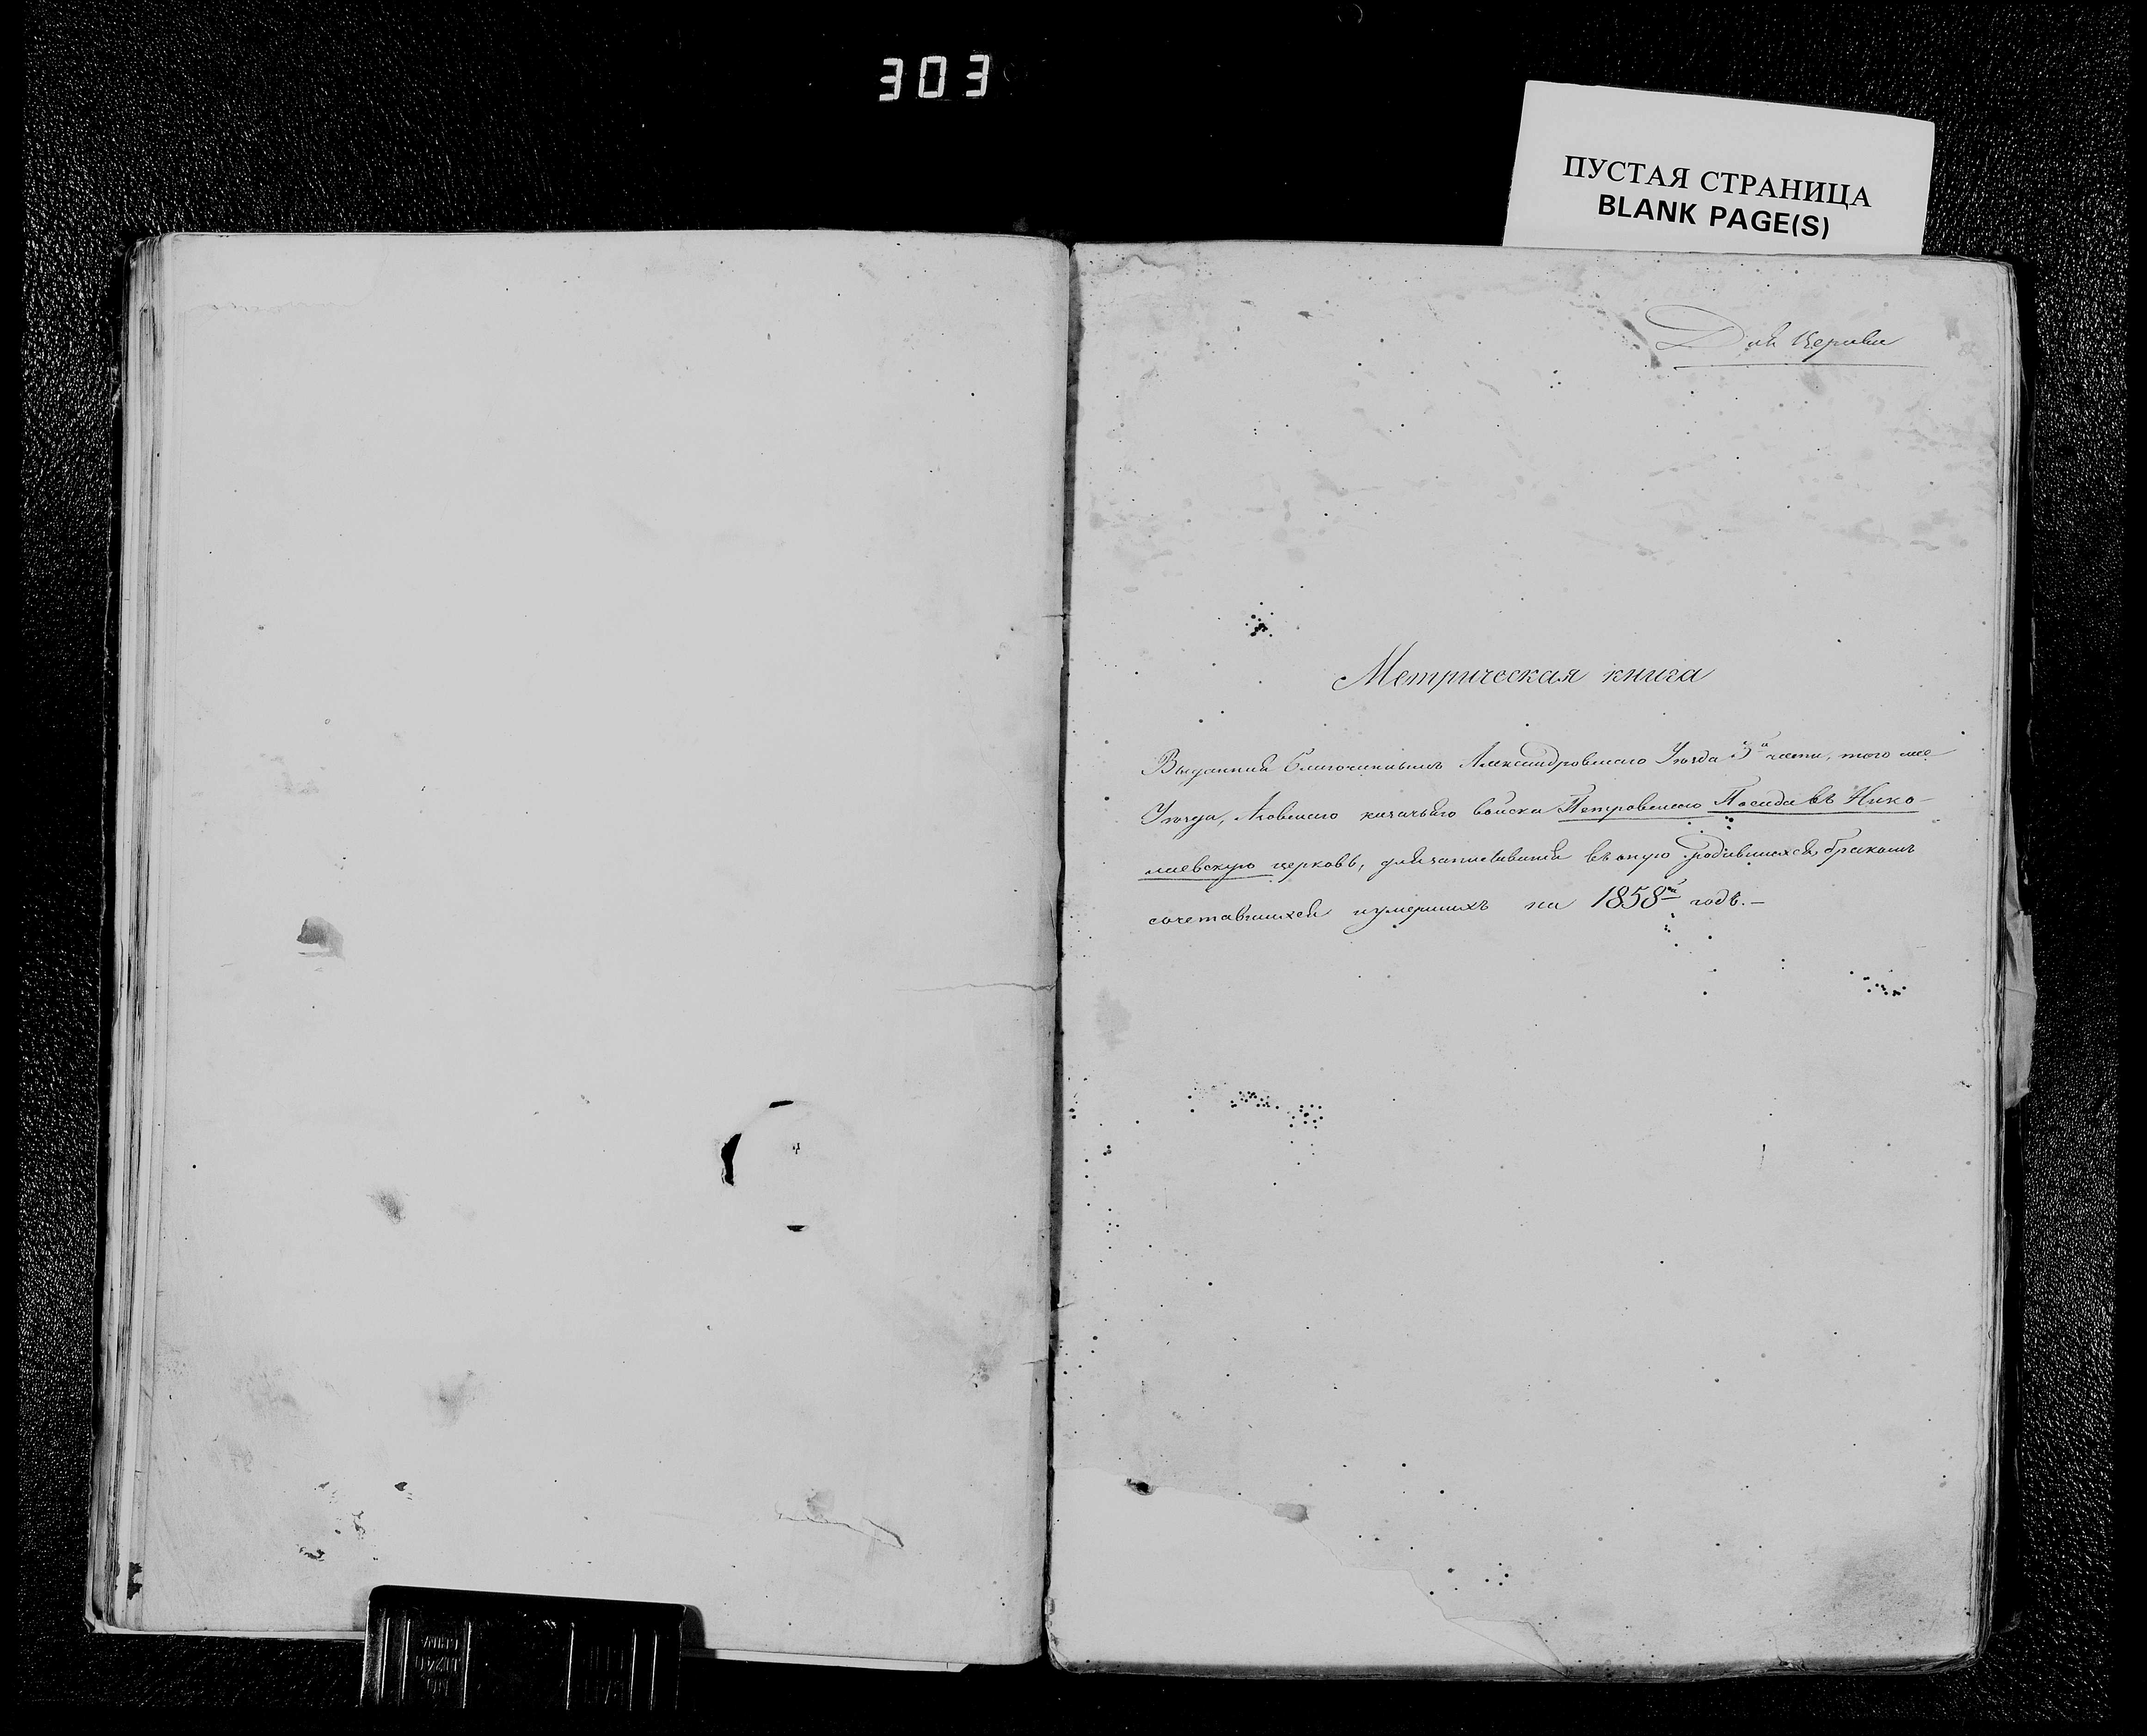 303
ПУСТАЯ СТРАНИЦА
BLANK PAGE(S)
Для Церкви
Метрическая книга
Выданная Благочиннымъ Александровскаго Уѣзда 3й части, того же
Уѣзда, Азовскаго казачьяго войска Петровскаго Посада въ Нико-
лаевскую церковь, для записыванія въ оную родившихся, бракомъ
сочетавшихся и умершихъ на 1858й годъ.-